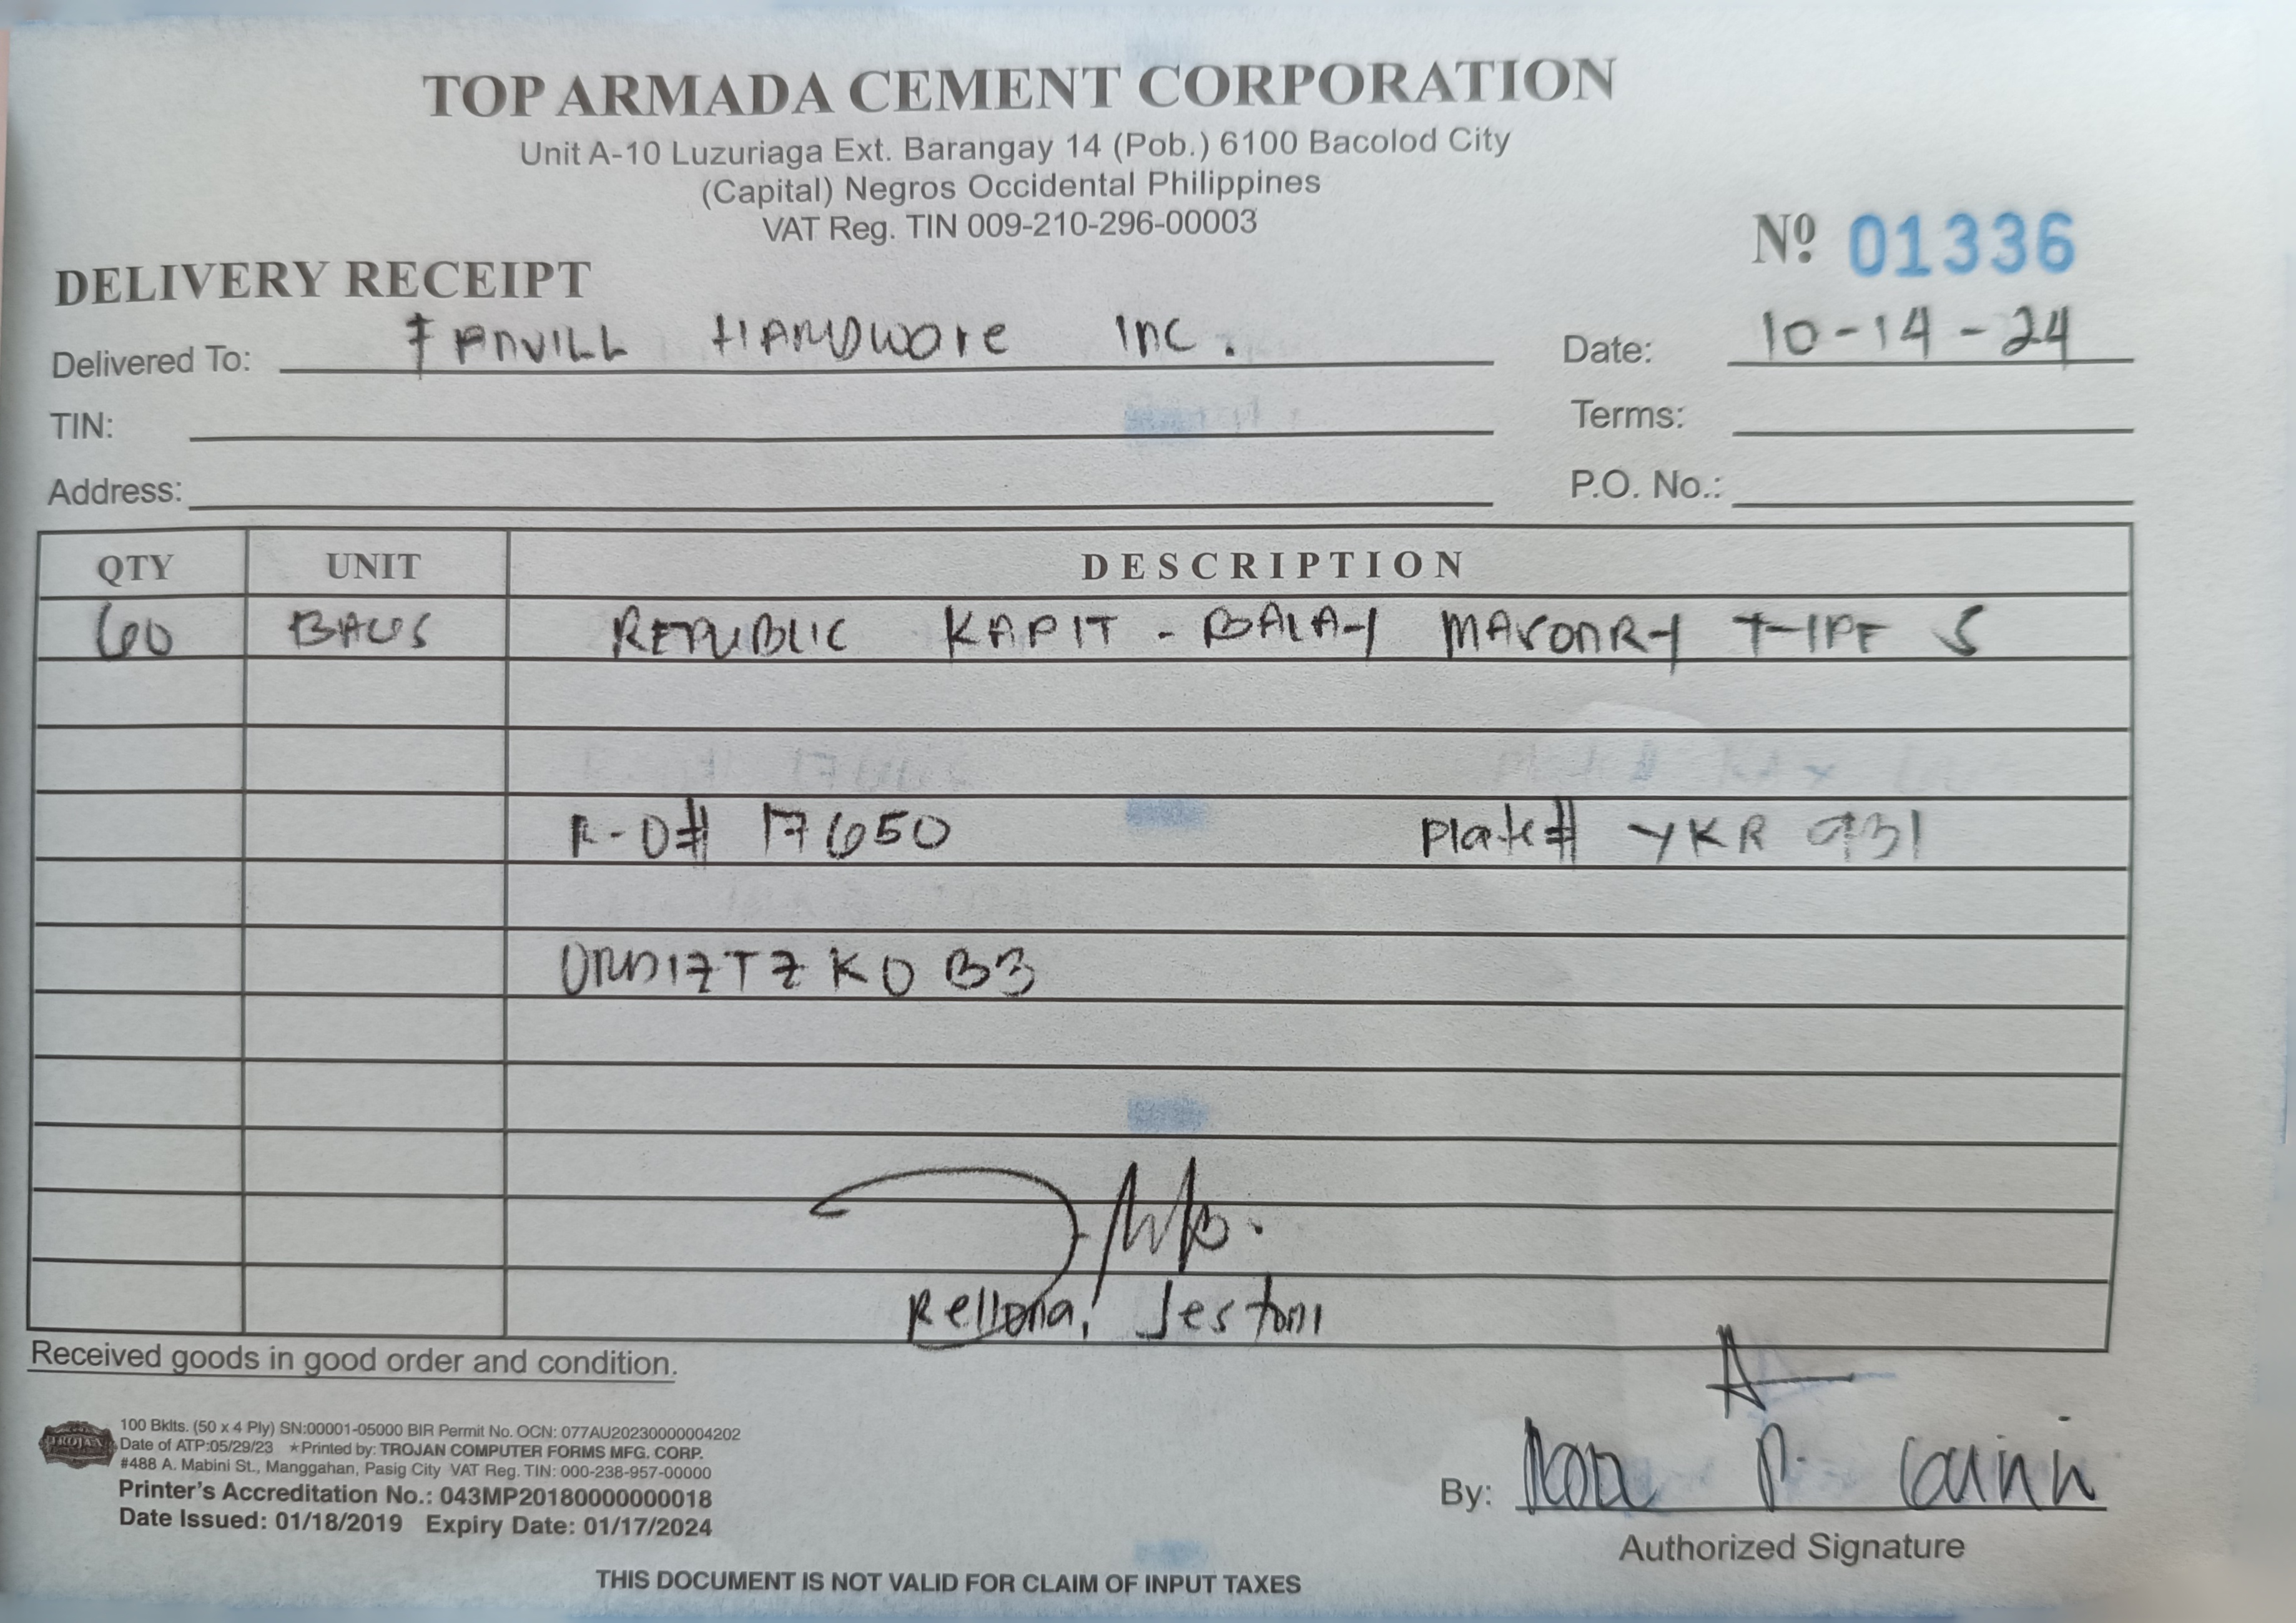 TOP ARMADA CEMENT CORPORATION
Unit A-10 Luzuriaga Ext. Barangay 14 (Pob.) 6100 Bacolod City
(Capital) Negros Occidental Philippines
VAT Reg. TIN 009-210-296-00003
Nº 01336
DELIVERY RECEIPT
Delivered To: FANVILL HARDWARE INC.
Date: 10-14-24
TIN:
Terms:
Address:
P.O. No.:
QTY UNIT DESCRIPTION
60 BAGS REPUBLIC KAPIT-BALAY MASONRY TYPE S
R-O# 17650 Plate# YKR 931
Rellona, Jestoni
Received goods in good order and condition.
TROJAN
100 Bklts. (50 x 4 Ply) SN:00001-05000 BIR Permit No. OCN: 077AU20230000004202
Date of ATP:05/29/23 ★Printed by: TROJAN COMPUTER FORMS MFG. CORP.
#488 A. Mabini St., Manggahan, Pasig City VAT Reg. TIN: 000-238-957-00000
Printer's Accreditation No.: 043MP20180000000018
Date Issued: 01/18/2019 Expiry Date: 01/17/2024
By:
Authorized Signature
THIS DOCUMENT IS NOT VALID FOR CLAIM OF INPUT TAXES